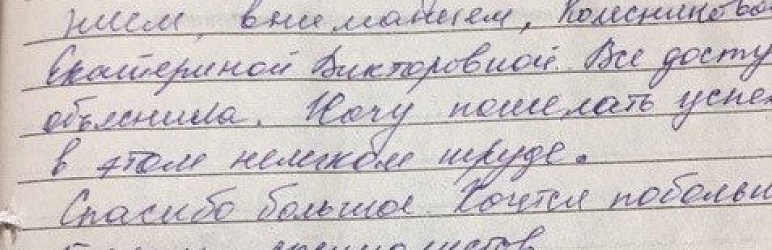 нием, вниманием, Колесникова
Екатериной Викторовной. Все досту
объяснила. Хочу пожелать успе
в этом нелегком труде.
Спасибо большое. Хочется побольш
специалистов